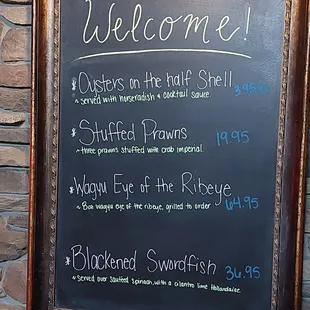 Welcome!
* Oysters on the half Shell
~ served with horseradish & cocktail sauce.
* Stuffed Prawns 19.95
~ three prawns stuffed with crab imperial.
* Wagyu Eye of the Ribeye 64.95
~ 8oz wagyu eye of the ribeye, grilled to order
* Blackened Swordfish 36.95
~ served over sautéed spinach, with a cilantro lime Hollandaise